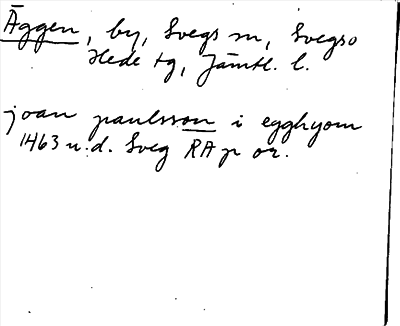 Äggen, by, Svegs sn, Svegs
Hede tg, Jämtl. l.
joan paulsson i egghyom
1463 u.d. Sveg RA p or.